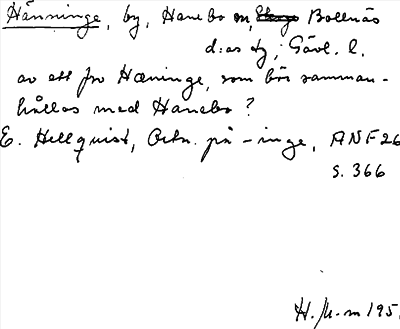 Hänninge, by, Hanebo sn, Bollnäs
d:as tg; Gävl. l.
av ett fno Hæninge, som bör samman-
hållas med Hanebo?
E. Hellquist, Ortn. på -inge, ANF 26
s. 366
H. 195